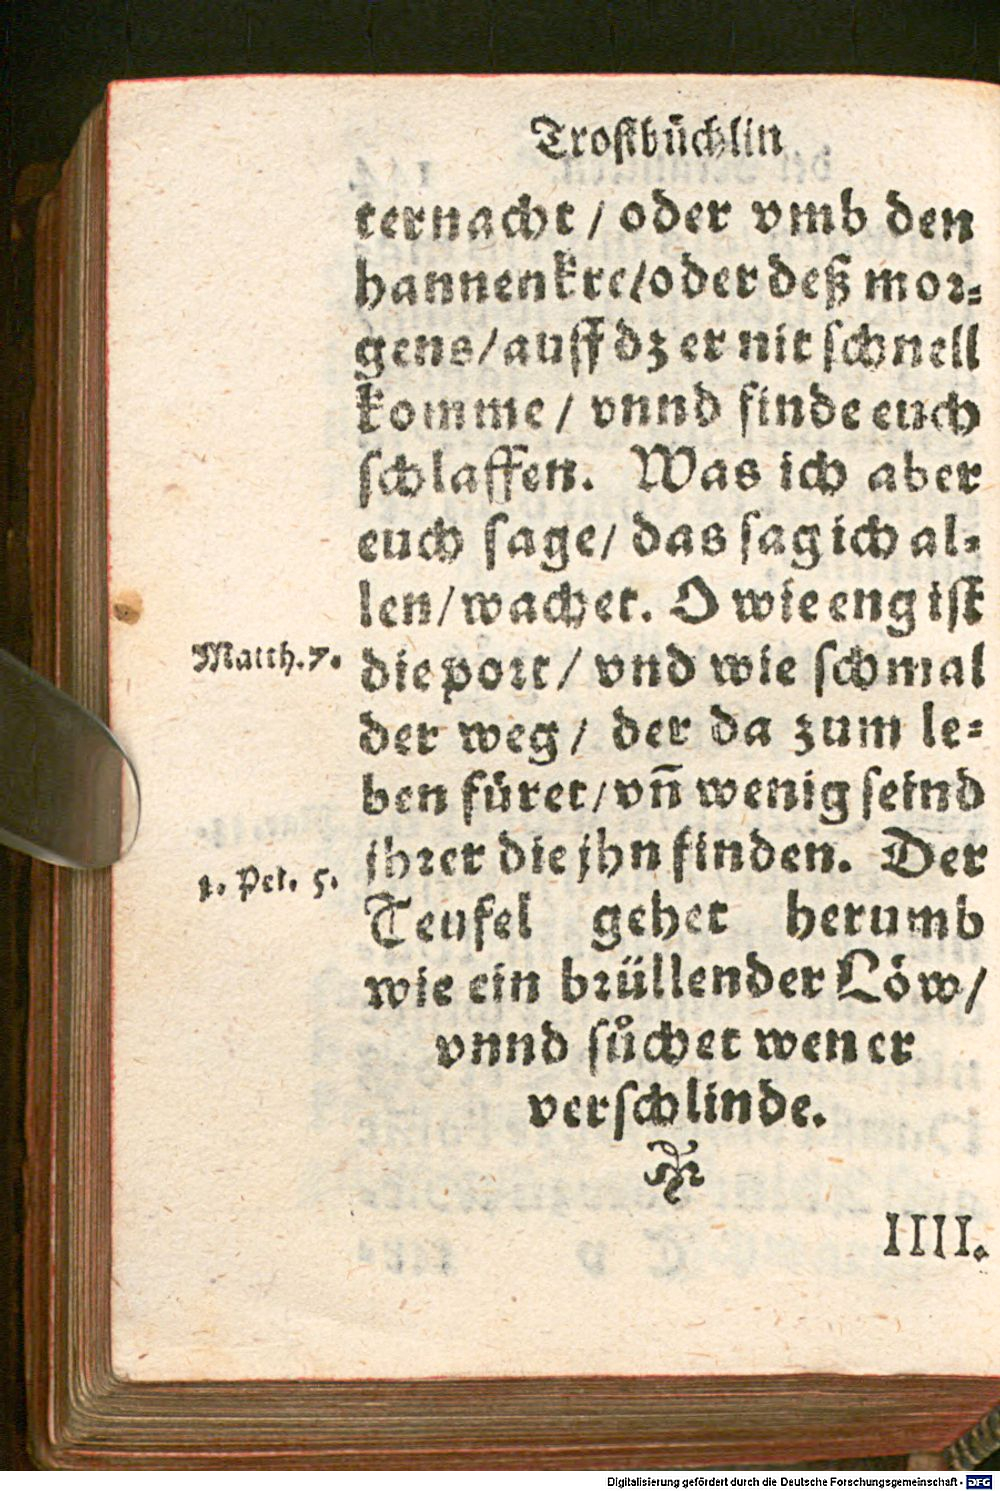 Trostbüchlin
ternacht / oder vmb den
hannenkre/oder deß mor⸗
gens/auff dz er nit schnell
komme / vnnd finde euch
schlaffen. Was ich aber
euch sage/ das sag ich al⸗
len/wachet. O wie eng ist
Matth.7.
die port/ vnd wie schmal
der weg/ der da zum le⸗
ben füret/vn̄ wenig seind
1. Pet. 5.
jhrer die jhn finden. Der
Teufel gehet herumb
wie ein brüllender Löw/
vnnd sůchet wen er
verschlinde.
IIII.
Digitalisierung gefördert durch die Deutsche Forschungsgemeinschaft - DFG